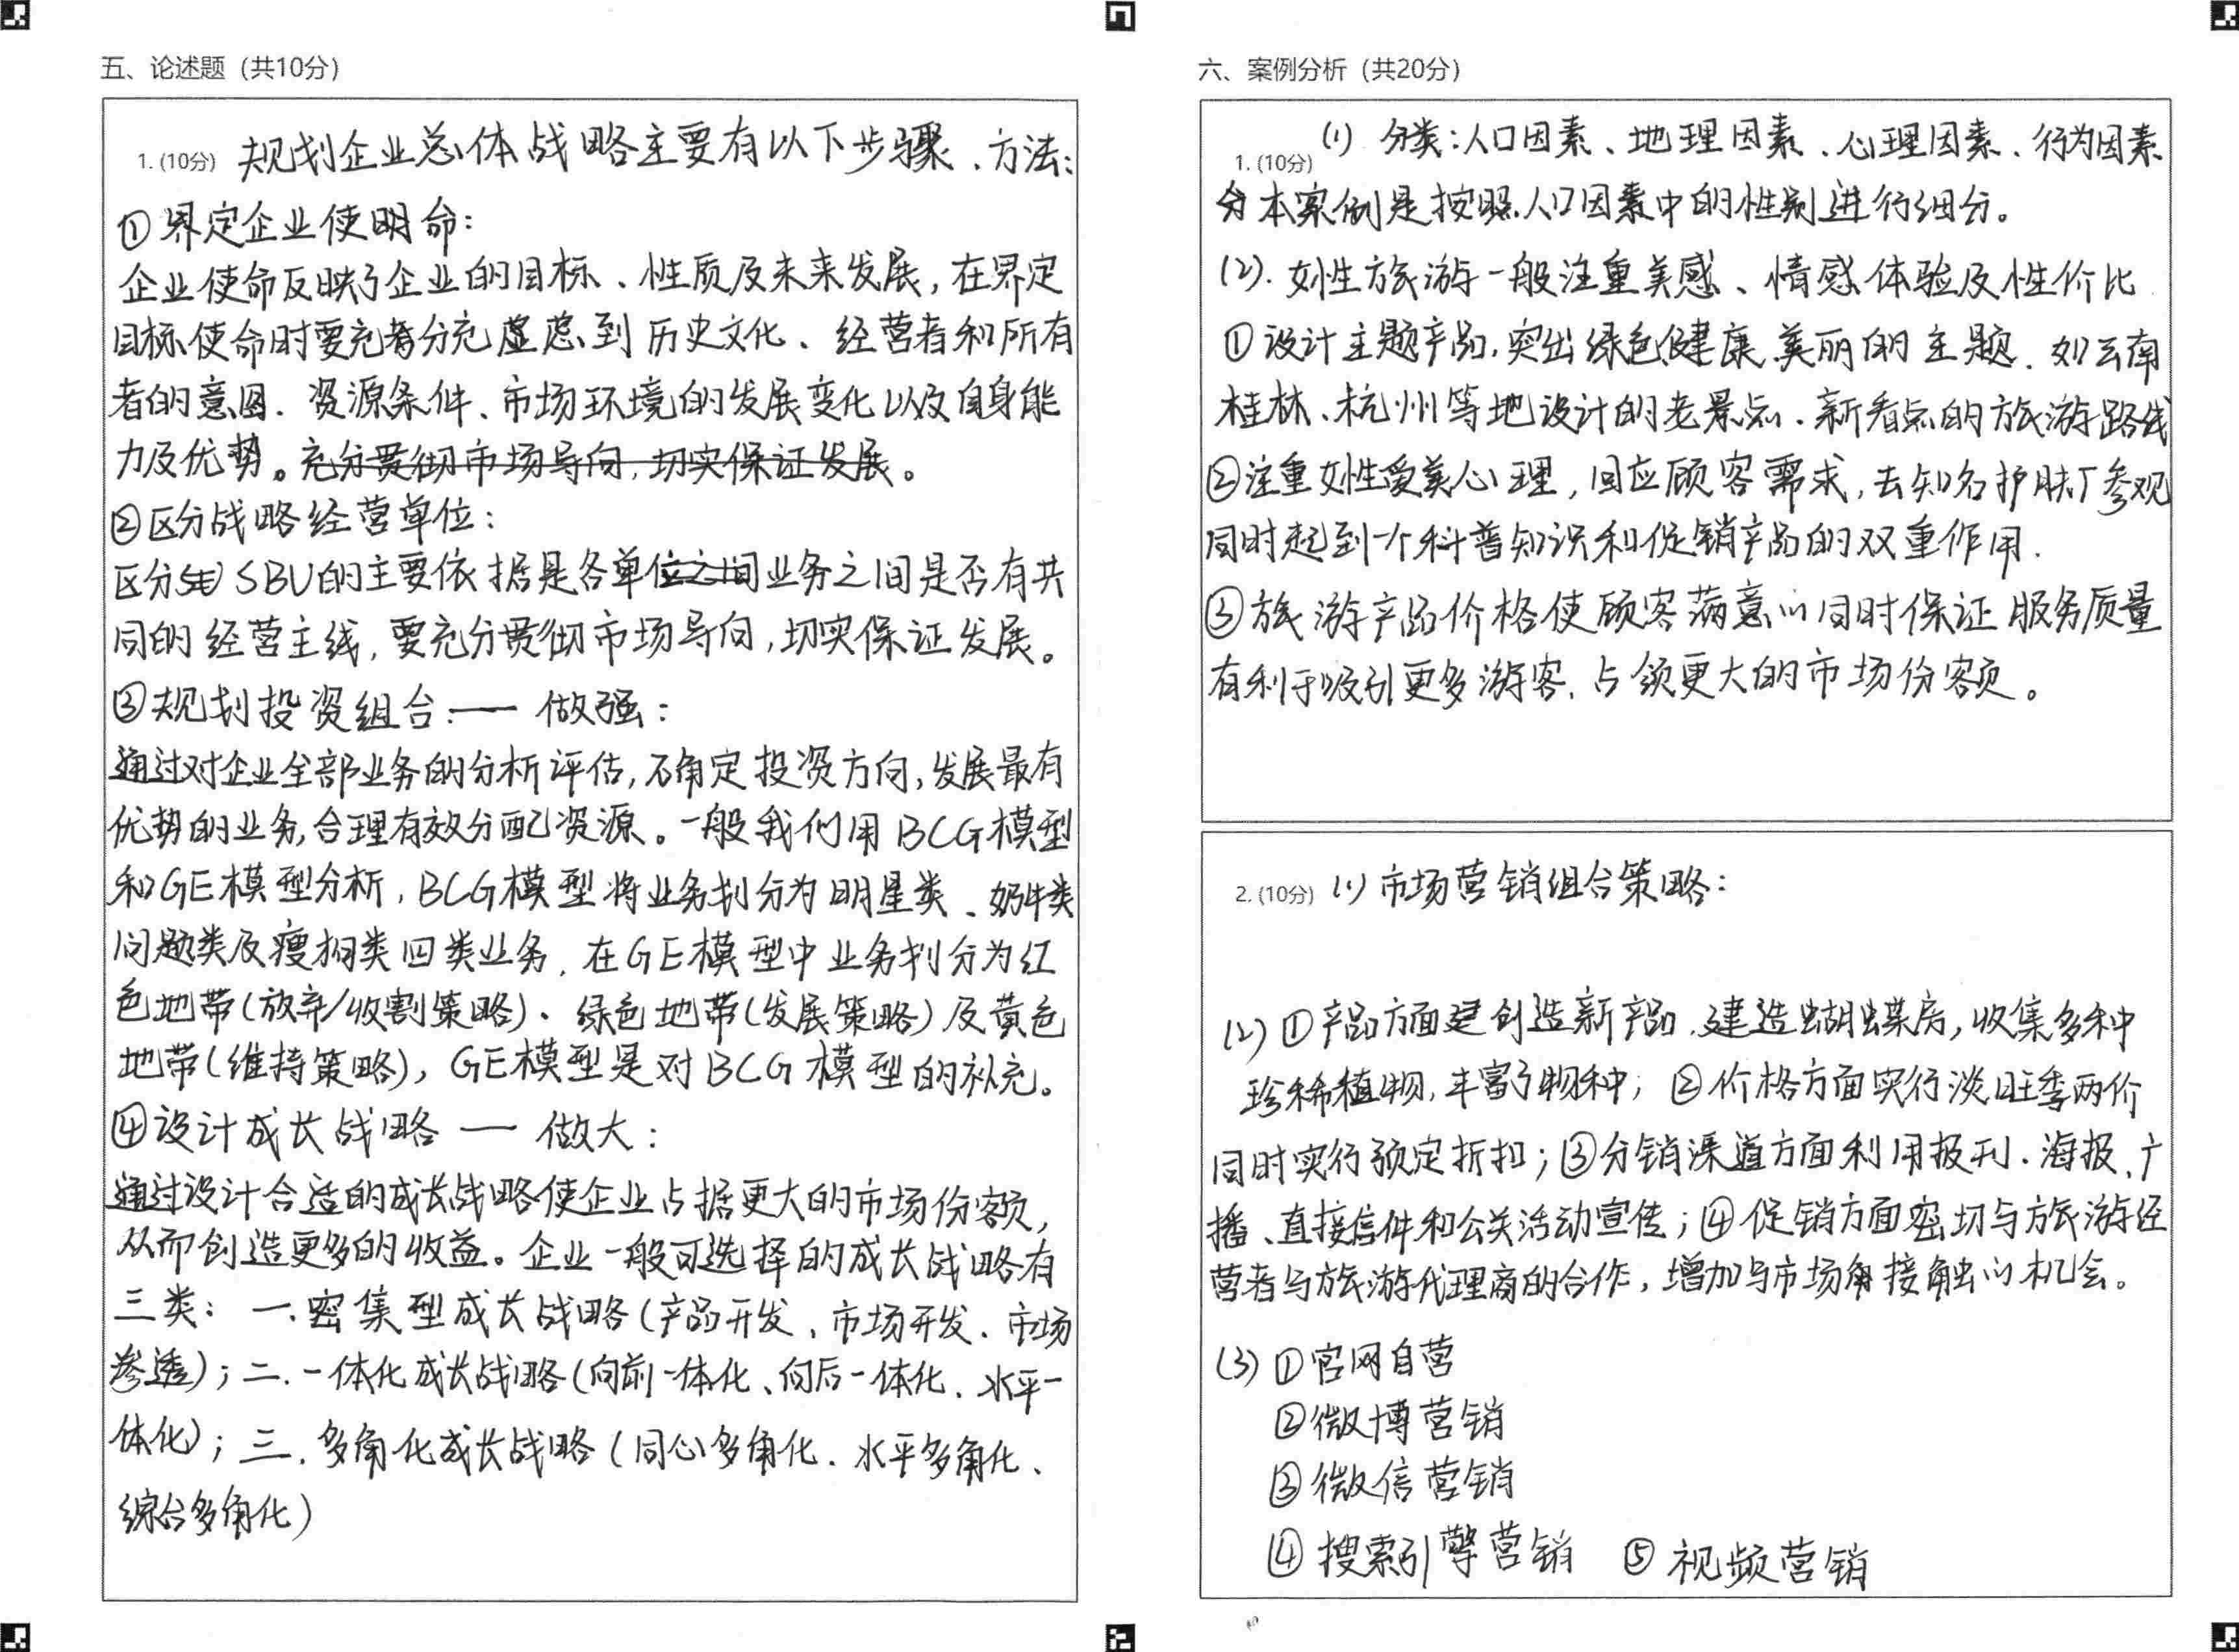 五、论述题（共10分）
1. (10分) 规划企业总体战略主要有以下步骤、方法：
①界定企业使明命：
企业使命反映了企业的目标、性质及未来发展，在界定
目标使命时要充考分充虑虑到历史文化、经营者和所有
者的意图、资源条件、市场环境的发展变化以及自身能
力及优势。充分贯彻市场导向，切实保证发展。
②区分战略经营单位：
区分SBU的主要依据是各单位之间业务之间是否有共
同的经营主线，要充分贯彻市场导向，切实保证发展。
③规划投资组合：— 做强：
通过对企业全部业务的分析评估，确定投资方向，发展最有
优势的业务，合理有效分配资源。一般我们用BCG模型
和GE模型分析，BCG模型将业务划分为明星类、奶牛类
问题类及瘦狗类四类业务，在GE模型中业务划分为红
色地带（放弃/收割策略）、绿色地带（发展策略）及黄色
地带（维持策略），GE模型是对BCG模型的补充。
④设计成长战略 — 做大：
通过设计合适的成长战略使企业占据更大的市场份额，
从而创造更多的收益。企业一般可选择的成长战略有
三类：一、密集型成长战略（产品开发、市场开发、市场
渗透）；二、一体化成长战略（向前一体化、向后一体化、水平一
体化）；三、多角化成长战略（同心多角化、水平多角化、
综合多角化）
六、案例分析（共20分）
1. (10分) (1) 分类：人口因素、地理因素、心理因素、行为因素
本案例是按照人口因素中的性别进行细分。
(2). 女性旅游一般注重美感、情感体验及性价比
①设计主题产品，突出绿色健康、美丽的主题、如云南
桂林、杭州等地设计的老景点、新看点的旅游路线
②注重女性爱美心理，回应顾客需求，去知名护肤厂参观
同时起到一个科普知识和促销产品的双重作用.
③旅游产品价格使顾客满意的同时保证服务质量
有利于吸引更多游客，占领更大的市场份额。
2. (10分) (1) 市场营销组合策略：
(2) ①产品方面建创造新产品，建造蝴蝶房，收集多种
珍稀植物，丰富了物种；②价格方面实行淡旺季两价
同时实行预定折扣；③分销渠道方面利用报刊、海报、广
播、直接信件和公关活动宣传；④促销方面密切与旅游经
营者与旅游代理商的合作，增加与市场接触的机会。
(3) ①官网自营
②微博营销
③微信营销
④搜索引擎营销 ⑤视频营销